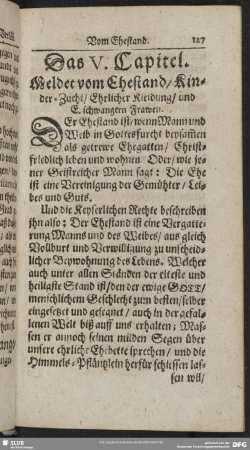 Vom Ehestand. 127
Das V. Capitel.
Meldet vom Ehestand/ Kin-
der-Zucht/ Ehrlicher Kleidung/ und
E. schwangern Frawen.
DEr Ehestand ist/ wenn Mann und
Weib in Gottesfurcht beysammen
als getrewe Ehegatten/ Christ-
friedlich leben und wohnen. Oder/ wie je-
ner Geistreicher Mann sagt: Die Ehe
ist eine Vereinigung der Gemühter/ Lei-
bes und Guts.
Und die Keyserlichen Rechte beschreiben
ihn also: Der Ehestand ist eine Vergatte-
rung Manns und des Weibes/ aus gleich
Vollburt und Verwilligung zu unscheid-
licher Beywohnung des Lebens. Welcher
auch unter allen Ständen der elteste und
heiligste Stand ist/ den der ewige GOTT/
menschlichem Geschlecht zum besten/ selber
eingesetzet und gesegnet/ auch in der gefal-
lenen Welt biß auff uns erhalten; Maß-
sen er annoch seinen milden Segen über
unsere ehrliche Ehebette sprechen/ und die
Himmels-Pfläntzlein herfür schiessen las-
sen wil/
SLUB
DFG